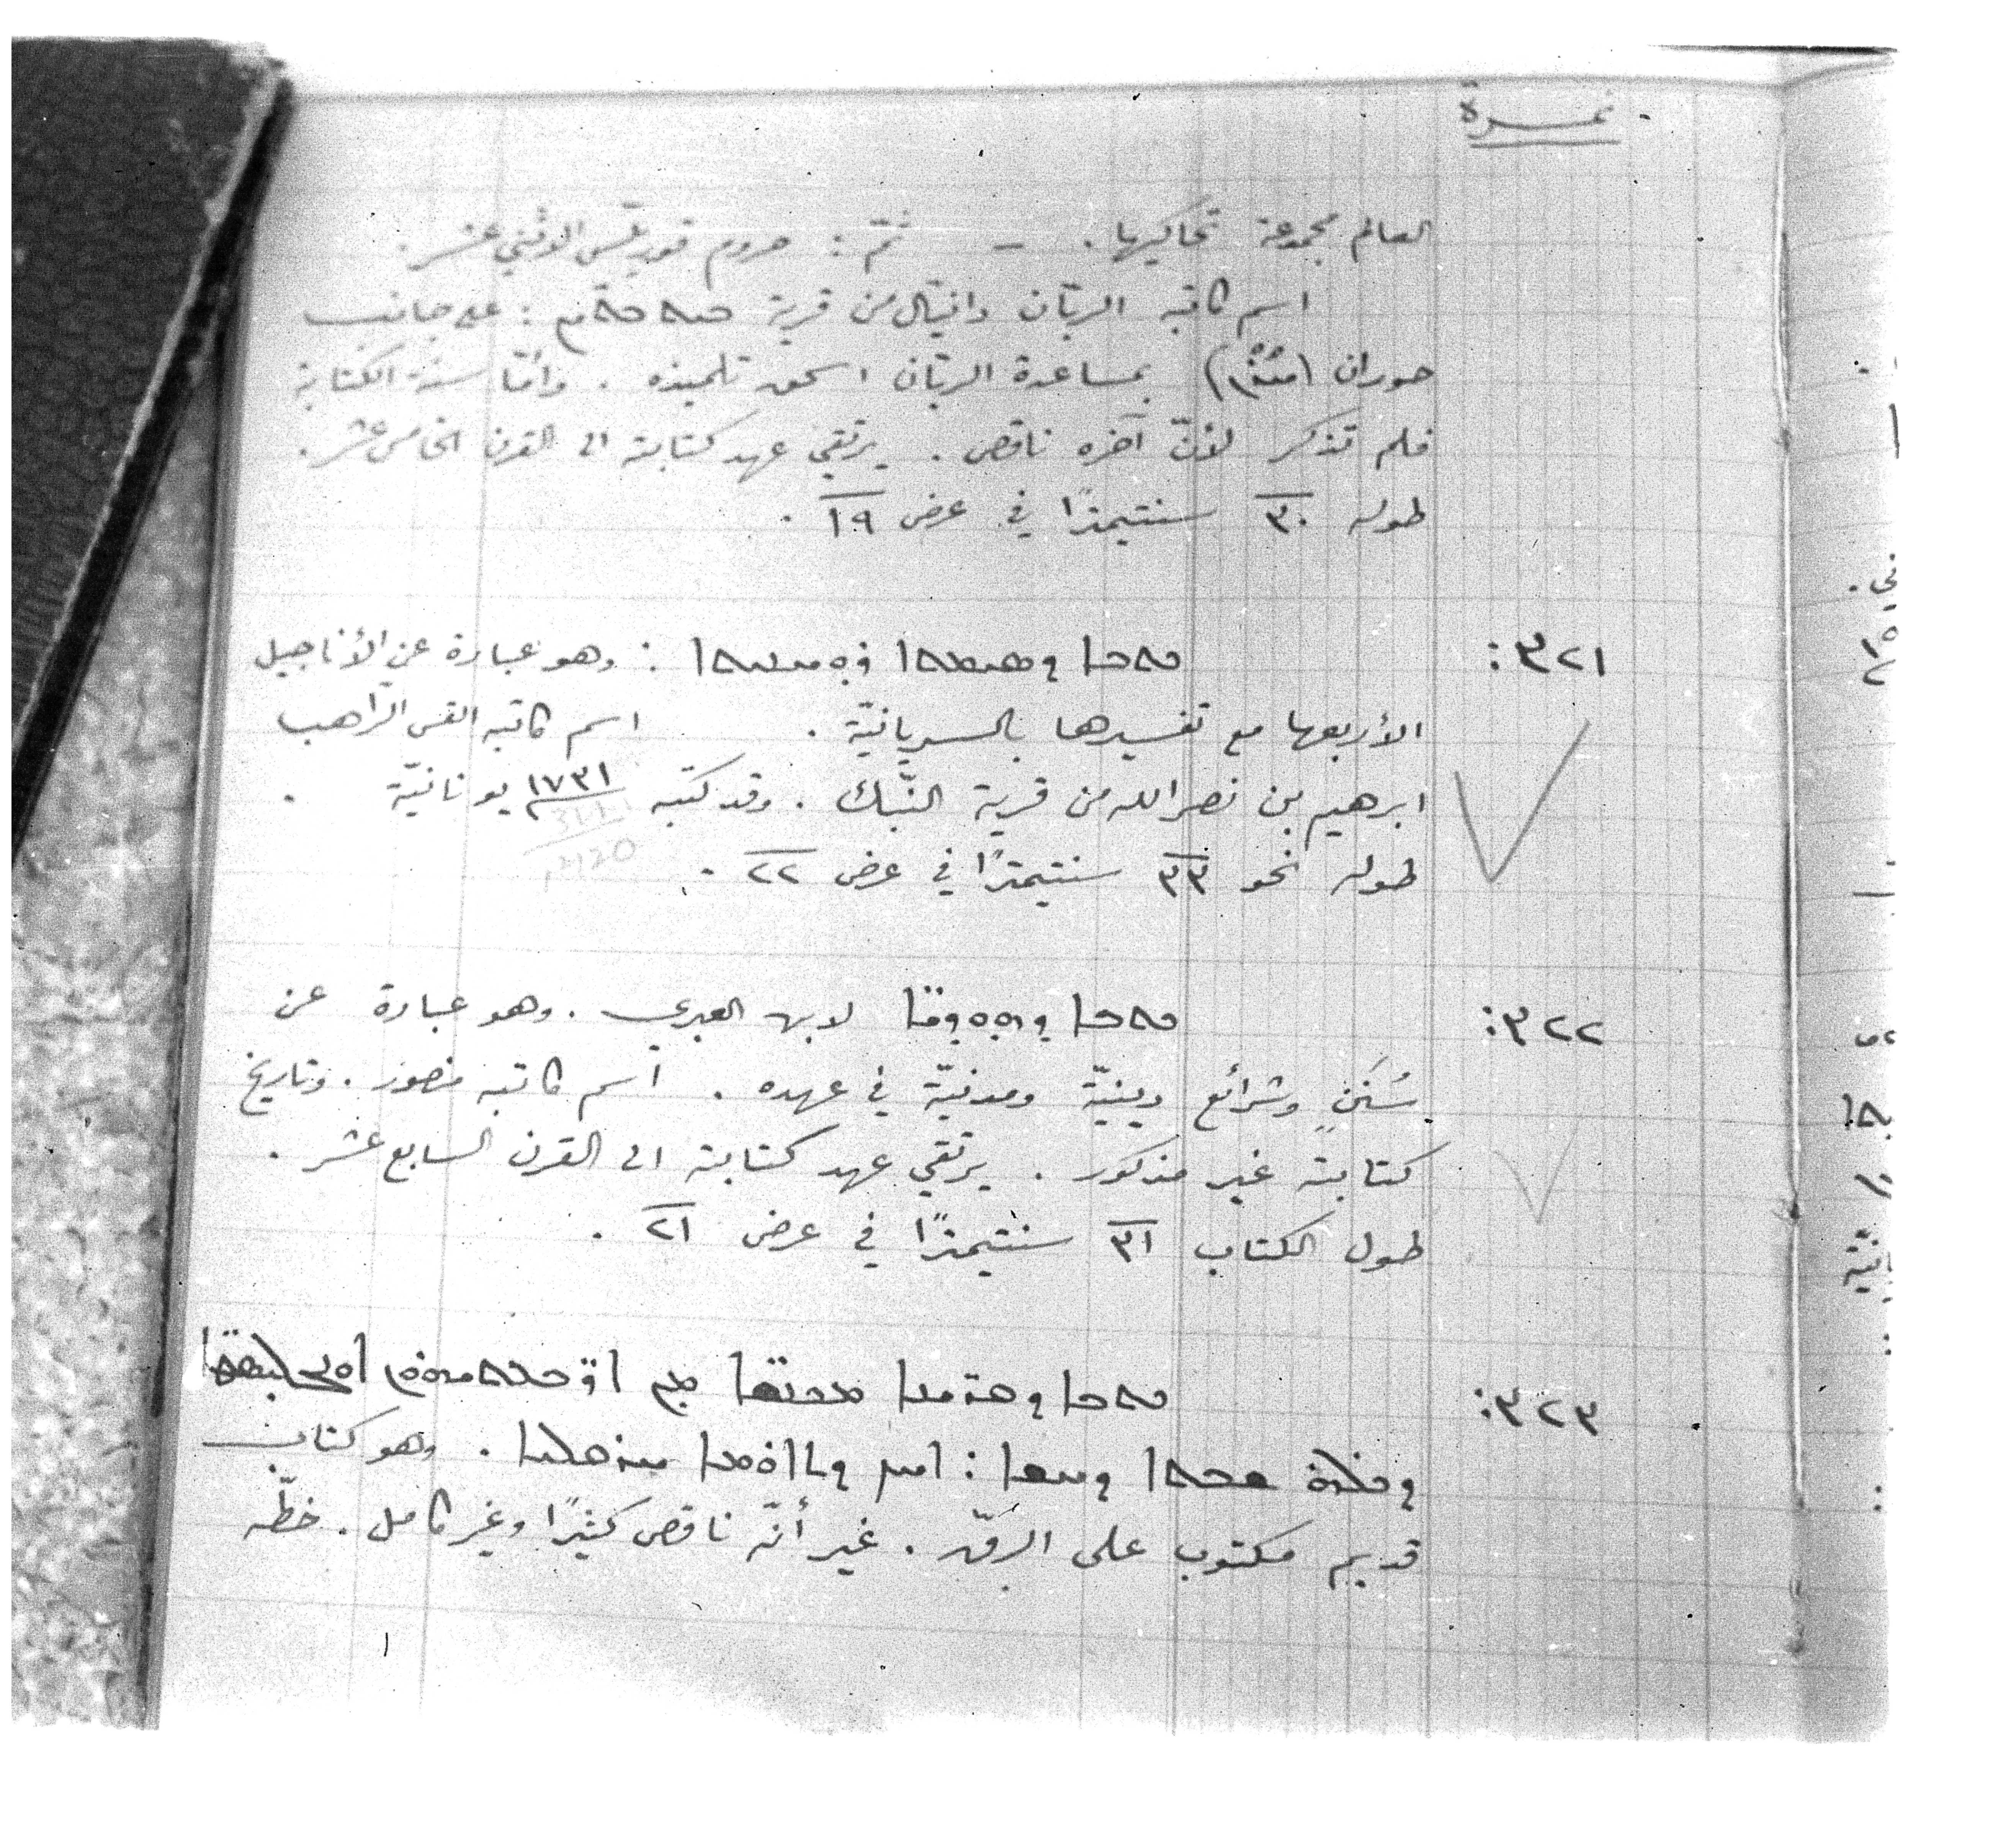 نمرة
العالم مجموعة تحاكيها. — ثمّ: حروم قوريلّس الاثني عشر.
اسم كاتبه الربّان دانيال من قرية : على جانب
حوران بمساعدة الربّان اسحق تلميذه. وأمّا سنة الكتابة
فلم تذكر لأنّ آخره ناقص. يرتقي عهد كتابته الى القرن الخامس عشر.
طوله ٣٠ سنتيمترًا في عرض ١٩.
٣٢١: ܟܬܒܐ : وهو عبارة عن الأناجيل
الأربعها مع تفسيرها بالسريانيّة. اسم كاتبه القس الرّاهب
ابرهيم بن نصرالله من قرية النّبك. وقد كتبه ١٧٣١ يونانيّة.
311
1420
طوله نحو ٣٣ سنتيمترًا في عرض ٢٢.
٣٢٢: ܟܬܒܐ ܕܗܘܕܝܐ لابن العبري. وهو عبارة عن
سُنَن وشرائع دينيّة ومدنيّة في عهده. اسم كاتبه منصور. وتاريخ
كتابته غير مذكور. يرتقي عهد كتابته الى القرن السابع عشر.
طول الكتاب ٣١ سنتيمترًا في عرض ٢١.
٣٢٣: ܟܬܒܐ ܕܗܪܩܝܢܐ ܩܕܝܫܐ ܡܢ ܐܪܒܥܬܝܗܘܢ ܐܘܢܓܠܝܣܛܐ
ܕܟܠܗ ܫܢܬܐ : ܐܝܟ ܕܬܐܘܡܐ ܚܪܩܠܝܐ. وهو كتاب
قديم مكتوب على الرقّ. غير أنّه ناقص كثيرًا وغير كامل. خطّه